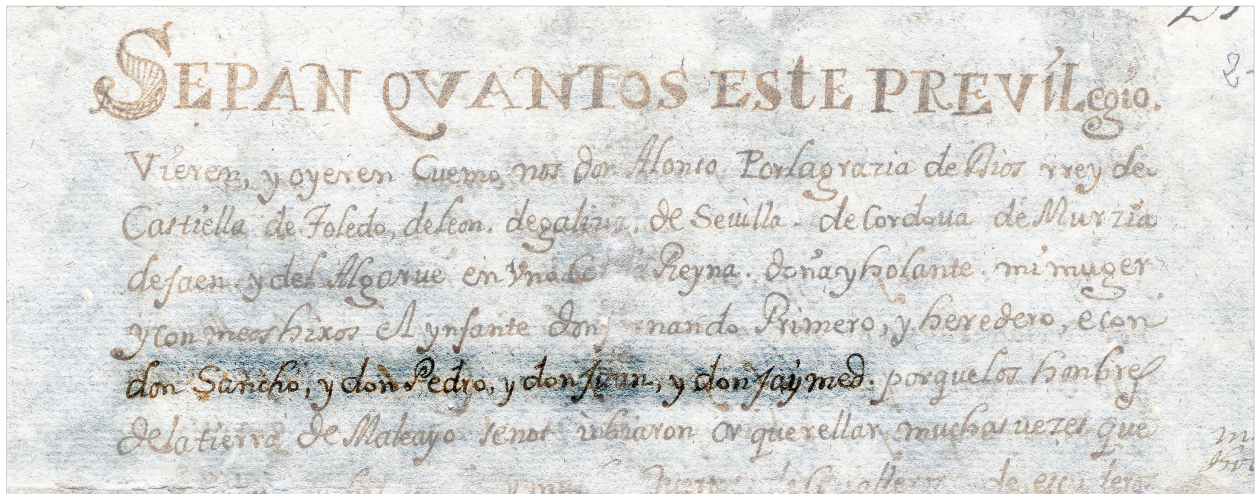 SEPAN QVANTOS ESTE PREVILegio.
Vieren, y oyeren Cuemo nos don Alonso Por la grazia de Dios rrey de
Castiella de Toledo, de leon. de galizia. de Sevilla. de Cordova de Murzia
de Jaen. y del Algarue en Vno Reyna. doña yholante. mi muger
y con meos hixos el ynfante don Primero, y heredero, e con
don Sancho, y don Pedro, y don Juan, y don Jaymed. porque los honbres
de la tierra de Maleayo se nos ubiaron a querellar muchas vezes que
de